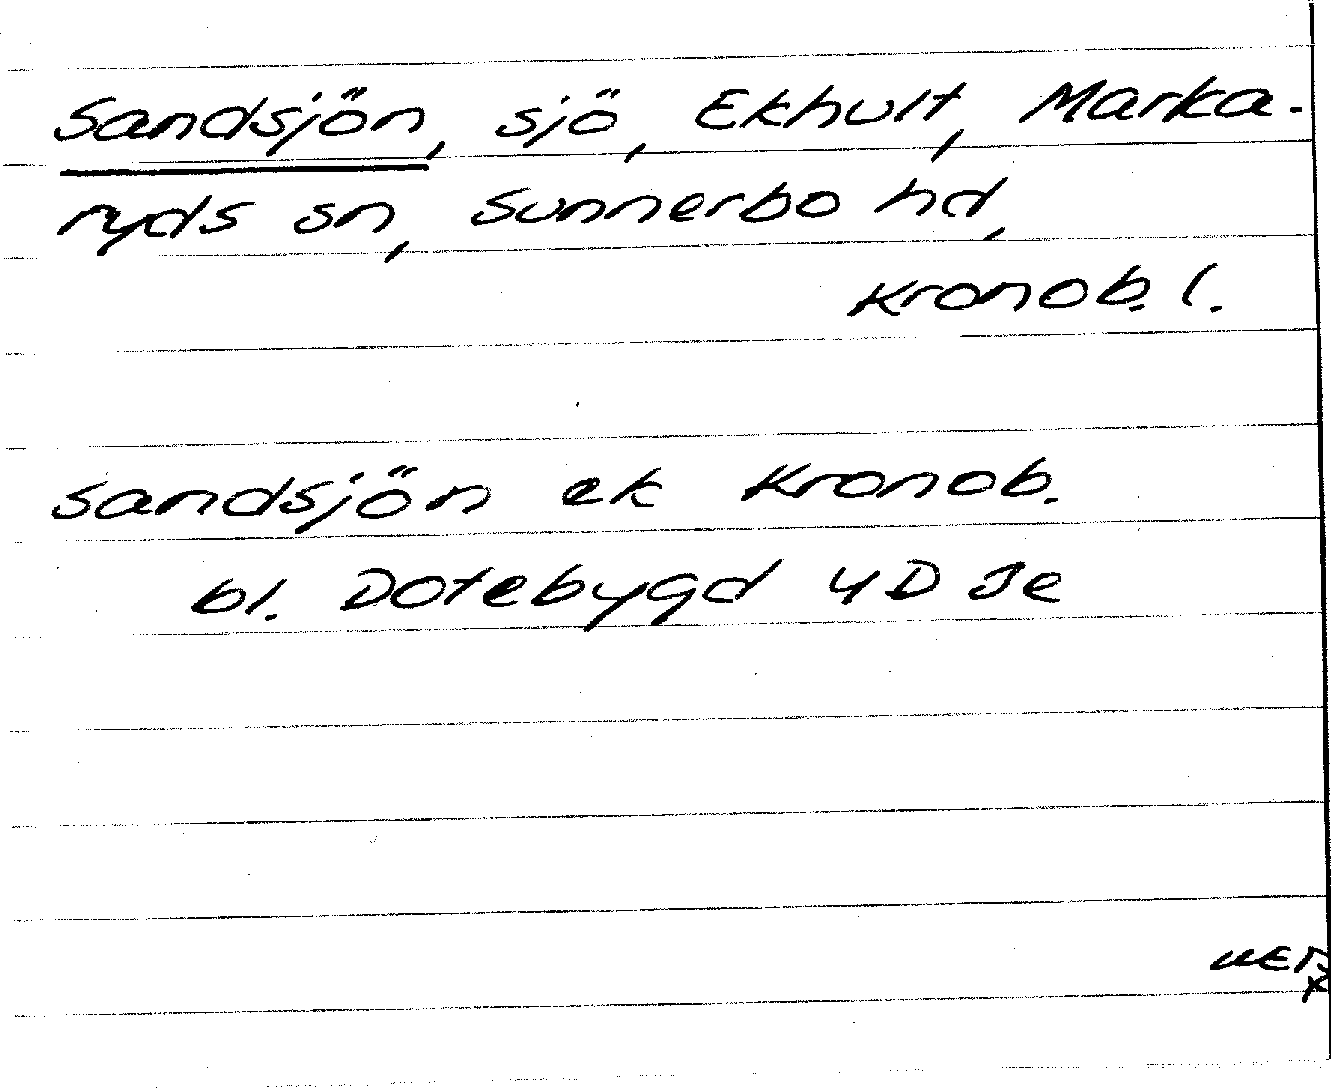 Sandsjön, sjö, Ekhult, Marka-
ryds sn, Sunnerbo hd,
Kronob. l.
Sandsjön ek Kronob.
bl. Dotebygd 4D Je